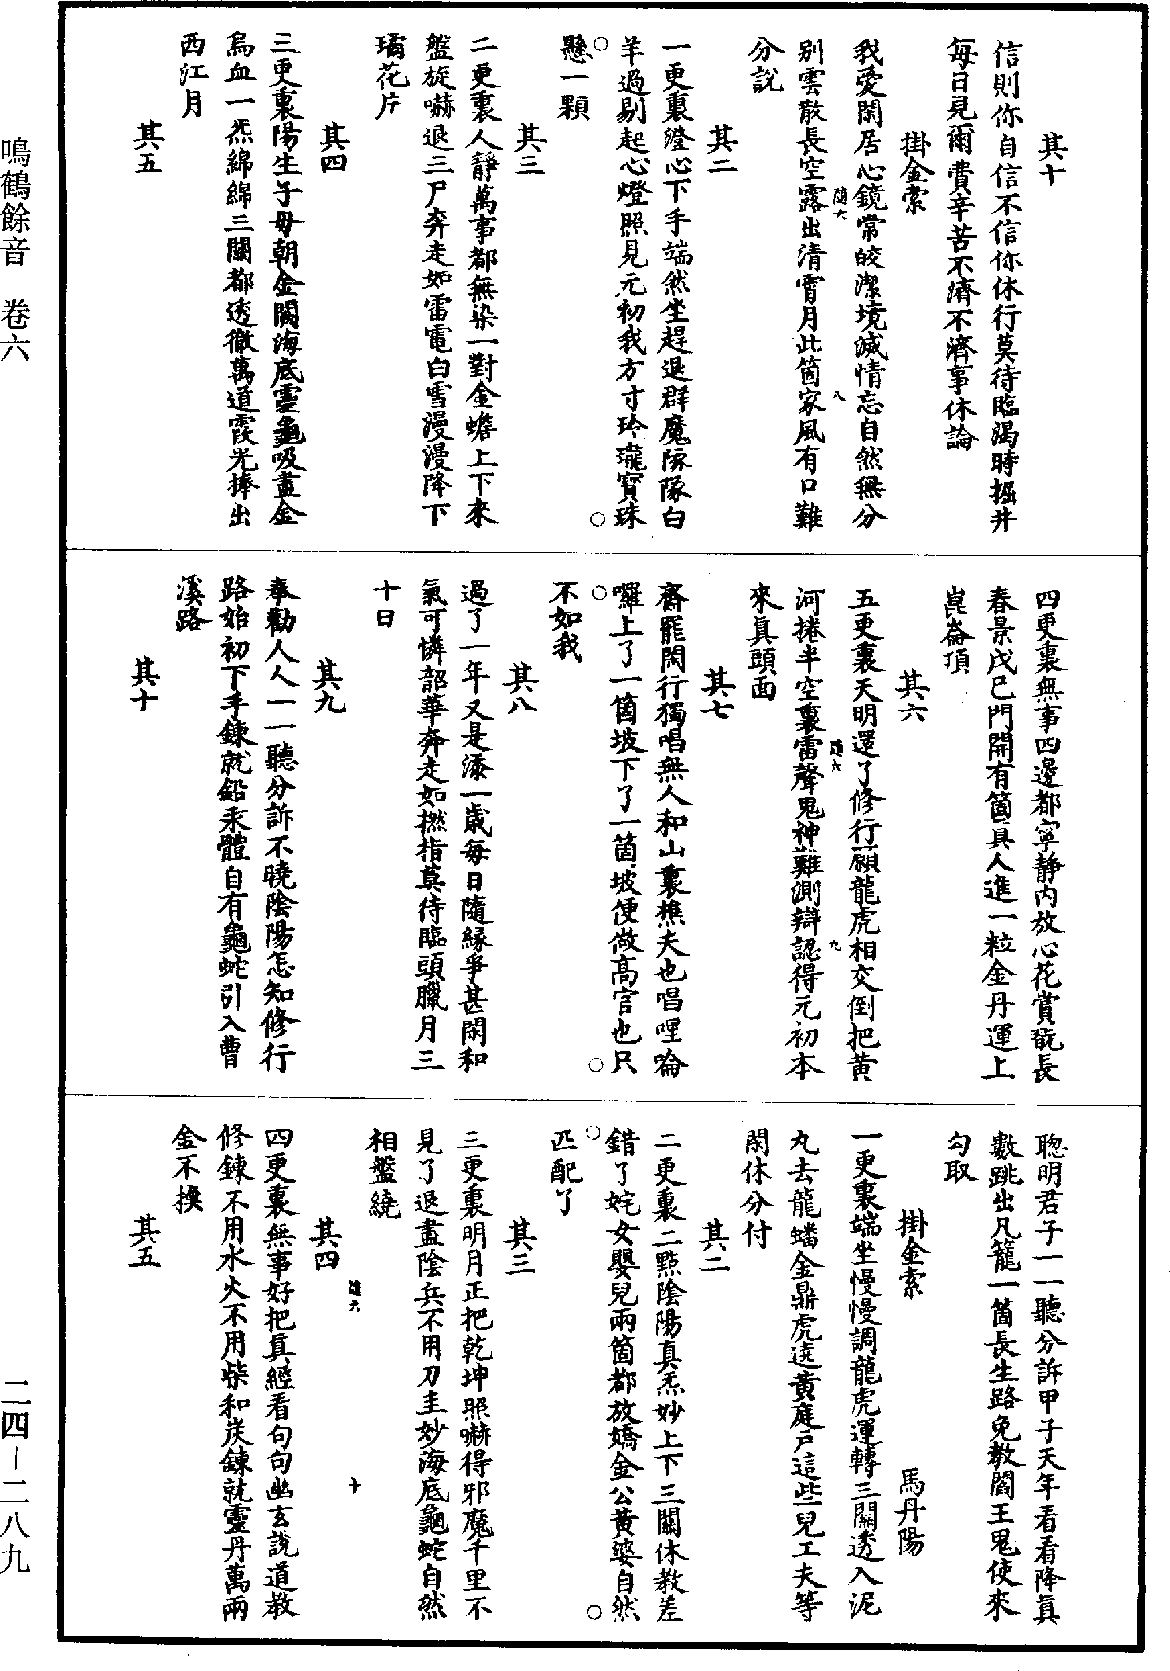 其十
信則你自信不信你休行莫待臨渴時掘井
每日見爾費辛苦不濟不濟事休論
掛金索
我愛閑居心鏡常皎潔境滅情忘自然無分
别雲散長空露出清霄月此箇家風有口難
分説
其二
一更裏澄心下手端然坐趕退群魔隊隊白
羊過剔起心燈照見元初我方寸玲瓏寶珠
懸一顆
其三
二更裏人靜萬事都無染一對金蟾上下來
盤旋嚇退三尸奔走如雷電白雪漫漫降下
璚花片
其四
三更裏陽生子母朝金闕海底靈龜吸盡金
烏血一炁綿綿三關都透徹萬道霞光捧出
西江月
其五
四更裏無事四邊都寧靜内放心花賞翫長
春景戊巳門開有箇真人進一粒金丹運上
崑崙頂
其六
五更裏天明還了修行願龍虎相交倒把黄
河捲半空裏雷聲鬼神難測辯認得元初本
來真頭面
其七
齋罷閑行獨唱無人和山裏樵夫也唱哩㖮
囉上了一箇坡下了一箇坡便做高官也只
不如我
其八
過了一年又是添一歲每日隨緣爭甚閑和
氣可憐韶華奔走如撚指莫待臨頭臘月三
十日
其九
奉勸人人一一聽分訴不曉陰陽怎知修行
路始初下手鍊就鉛汞體自有龜蛇引入曹
溪路
其十
聰明君子一一聽分訴甲子天年看看降真
數跳出凡籠一箇長生路免教閻王鬼使來
勾取
掛金索 馬丹陽
一更裏端坐慢慢調龍虎運轉三關透入泥
丸去龍蟠金鼎虎遶黄庭戸這些兒工夫等
閑休分付
其二
二更裏二點陰陽真炁妙上下三關休教差
錯了姹女嬰兒兩箇都放嬌金公黄婆自然
匹配了
其三
三更裏明月正把乾坤照嚇得邪魔千里不
見了退盡陰兵不用刀圭妙海底龜蛇自然
相盤繞
其四
四更裏無事好把真經看句句幽玄説道教
修鍊不用水火不用柴和炭鍊就靈丹萬兩
金不換
其五
隨六
八
隨六
九
隨六
十
鳴鶴餘音 卷六
二四－二八九